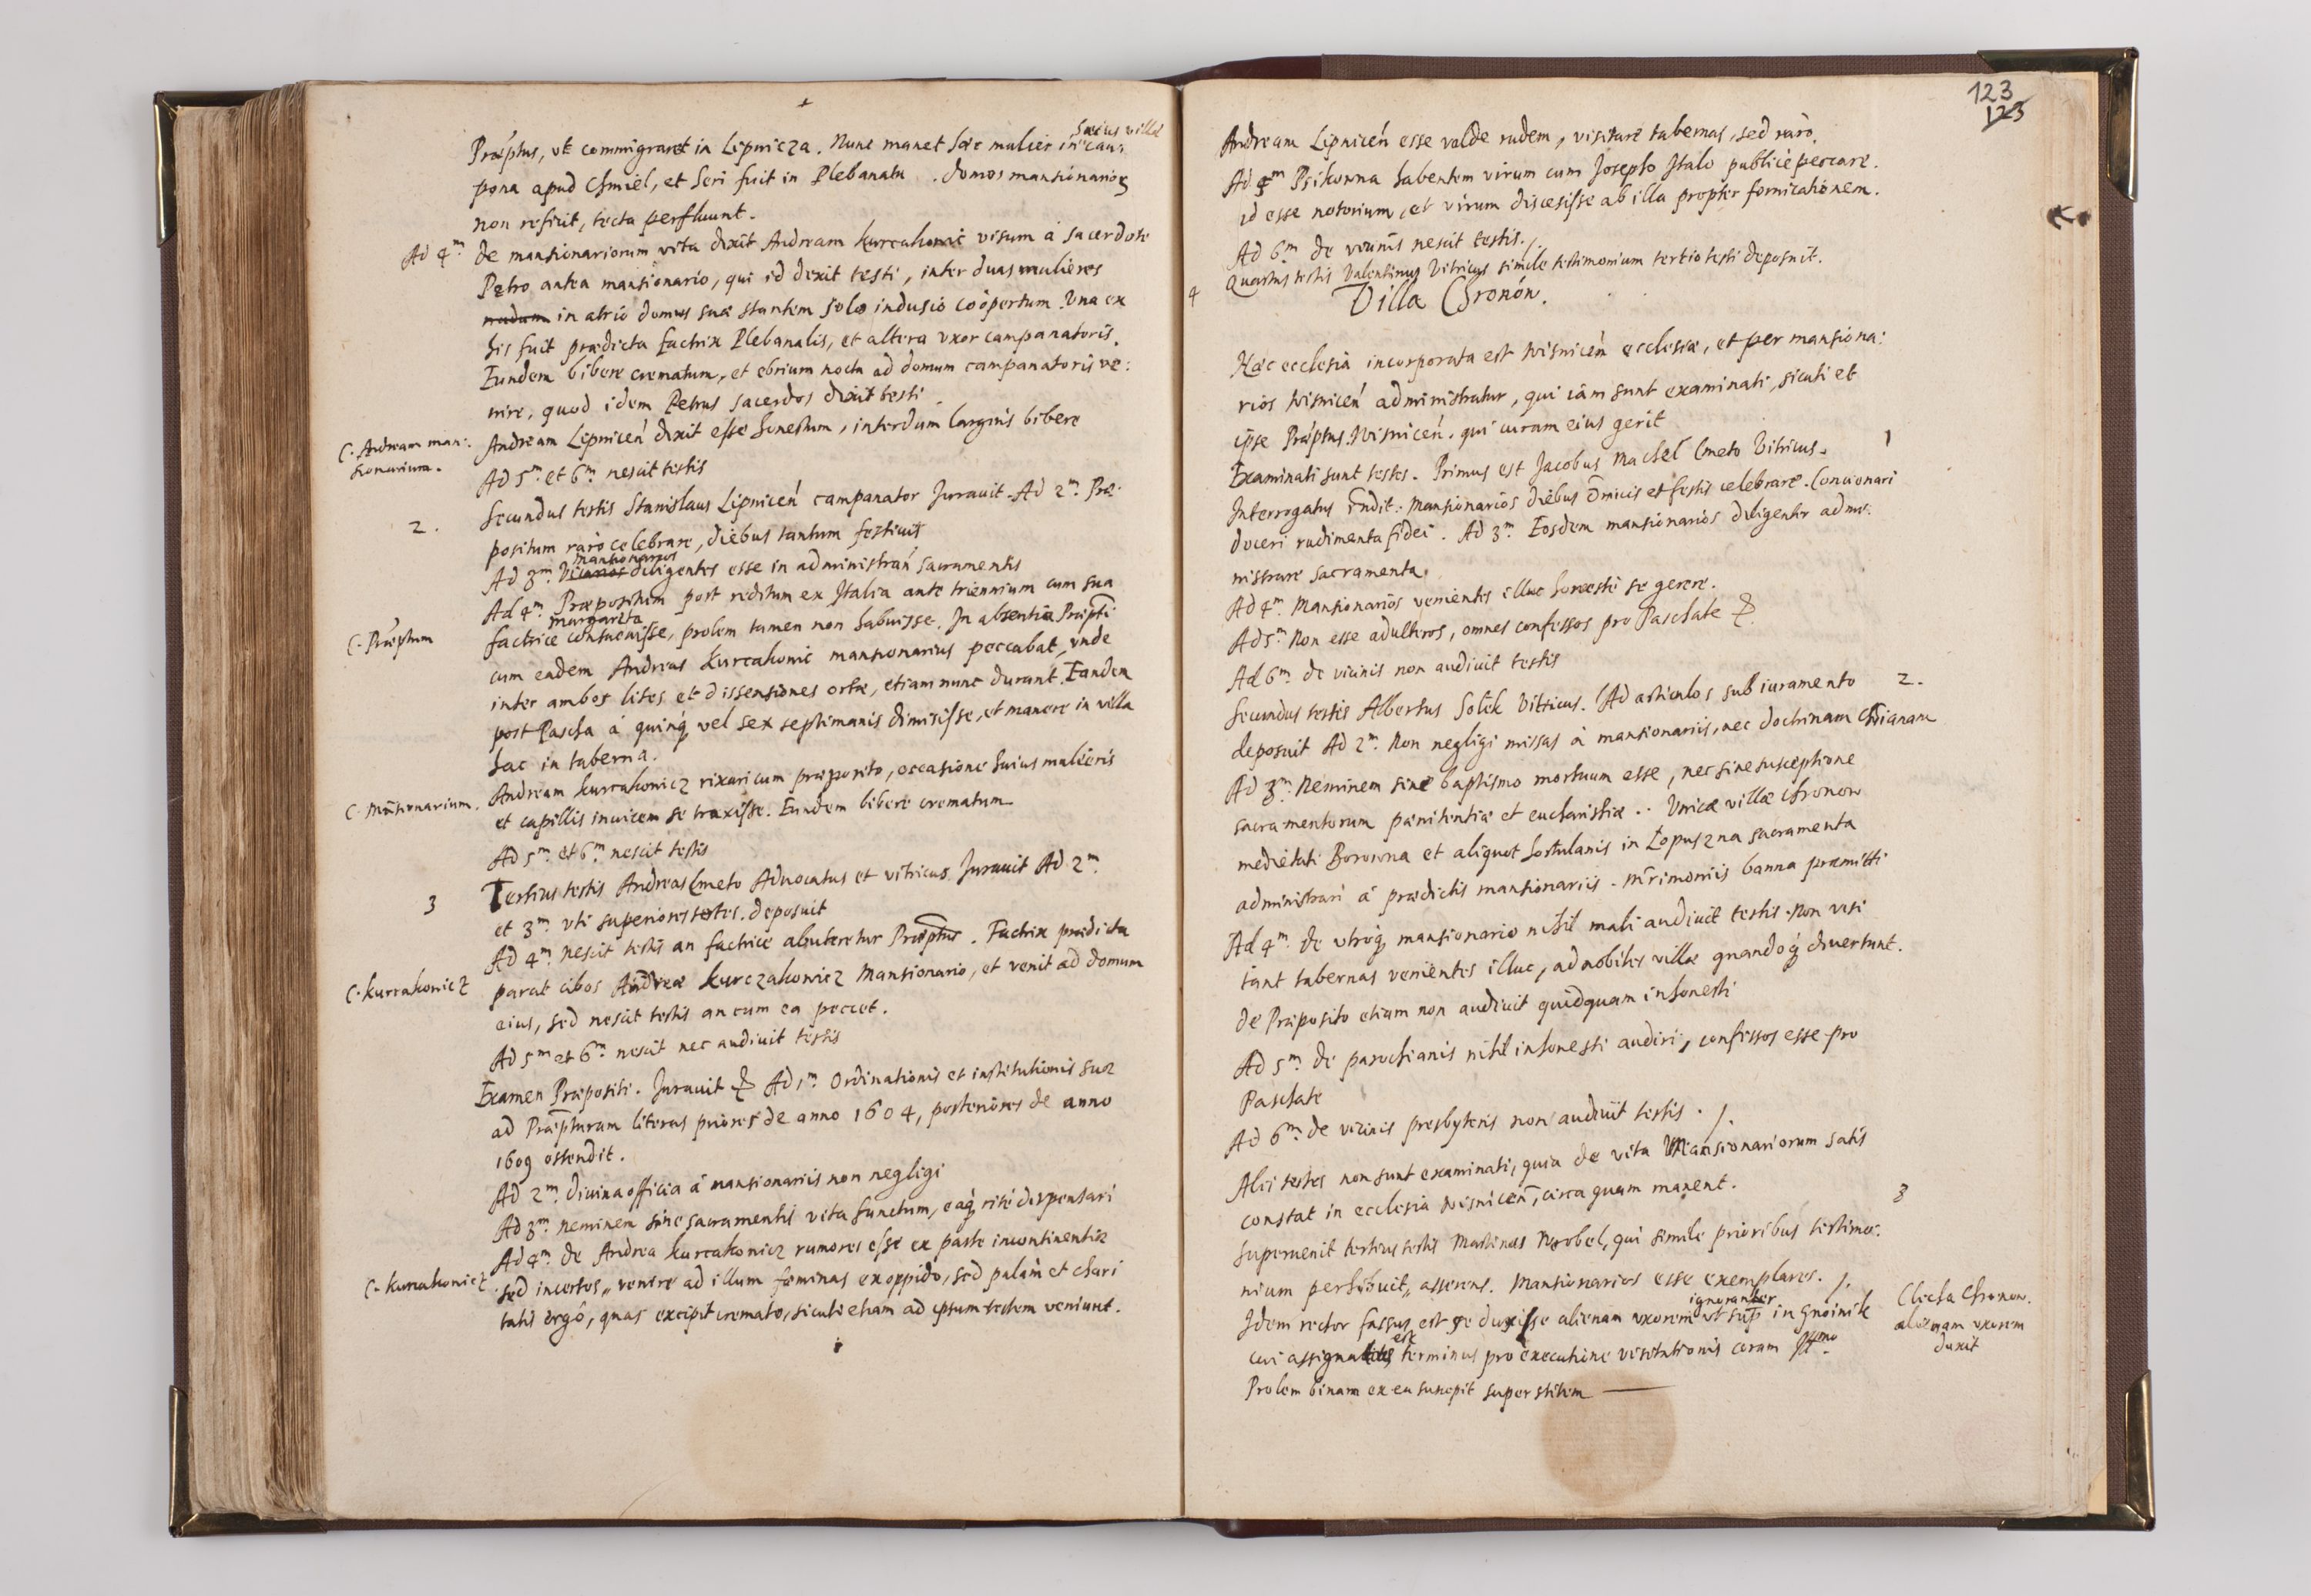 Præptus, vt commigraret in Lipnicza. Nunc manet hæc mulier in huius villæ cau:
pona apud Chmiel, et heri fuit in Plebanatu. domos mansionarioꝝ
non reficit, tecta perfluunt.
Ad 4m. de mansionariorum vita dixit Andream kurcakowic visum à sacerdote
Petro antea mansionario, qui id dixit testi, inter duas mulieres
nudum in atrio domus suæ stantem solo indusio coopertum. Vna ex
his fuit prædicta factrix Plebanalis, et altera vxor campanatoris.
Eundem bibere crematum, et ebrium noctu ad domum campanatoris ve:
nire, quod idem Petrus sacerdos dixit testi
C. Andream man:
sionarium.
Andream Lipnicen dixit esse honestum, interdum largius bibere
Ad 5m. et 6m. nescit testis
2. Secundus testis Stanislaus Lipnicen campanator Jurauit. Ad 2m. Præ:
positum raro celebrare, diebus tantum festiuis
Ad 3m. Vicarios mansionarios diligentes esse in administran sacramentis
Ad 4m. Præpositum post reditum ex Italia ante triennium cum sua
C. Præptum
factrice margarita consueuisse, prolem tamen non habuisse. In absentia Præpti
cum eadem Andreas kurcakowic mansionarius peccabat, vnde
inter ambos lites et dissensiones ortæ, etiam nunc durant. Eandem
post Pascha à quinq vel sex septimanis dimisisse, et manere in villa
hac in taberna.
C. mansionarium.
Andream kurcakowicz rixari cum præposito, occasione huius mulieris
et capillis inuicem se traxisse. Eundem bibere crematum
Ad 5m. et 6m. nescit testis
3 Tertius testis Andreas Cmeto Aduocatus et vitricus Jurauit Ad 2m.
et 3m. vti superiores testes. deposuit
Ad 4m. nescit testis an factrice abuteretur Præptus. Factrix prædicta
C. kurcakowicz
parat cibos Andreæ kurczakowicz Mansionario, et venit ad domum
eius, sed nescit testis an cum ea peccet.
Ad 5m et 6m. nescit nec audiuit testis
Examen Præpositi. Jurauit &c. Ad 1m. Ordinationis et institutionis suæ
ad Præpturam literas priores de anno 1604, posteriores de anno
1609 ostendit.
Ad 2m. diuina officia à mansionariis non negligi
Ad 3m. neminem sine sacramentis vita functum, eaq rite dispensari
Ad 4m. de Andrea kurcakowicz rumores esse ex parte incontinentiæ
C. kurcakowicz
sed incertos, venire ad illum fæminas ex oppido, sed palam et chari
tatis ergo, quas excipit cremato, sicuti etiam ad ipsum testem veniunt.
123
123
Andream Lipnicen esse valde rudem, visitare tabernas, sed raro.
Ad 5m Psikowna habentem virum cum Josepho Italo publice peccare.
id esse notorium, et virum discessisse ab illa propter fornicationem.
Ad 6m. de vicinis nescit testis.
4 Quartus testis Valentinus Vitricus simile testimonium tertio testi deposuit.
Villa Chronow.
Hæc ecclesia incorporata est Wisnicen ecclesiæ, et per mansiona:
rios Wisnicen administratur, qui iam sunt examinati, sicuti et
ipse Præptus. Wisnicen. qui curam eius gerit
Examinati sunt testes. Primus est Jacobus Machel Cmeto Vitricus. 1
Interrogatus rndit: Mansionarios diebus Dnicis et festis celebrare. Concionari
doceri rudimenta fidei. Ad 3m. Eosdem mansionarios diligenter admi:
nistrare sacramenta.
Ad 4m. Mansionarios venientes illuc honeste se gerere.
Ad 5m. Non esse adulteros, omnes confessos pro Paschate &c.
Ad 6m. de vicinis non audiuit testis
Secundus testis Albertus Solek Vitricus. Ad articulos sub iuramento 2.
deposuit Ad 2m. Non negligi missas à mansionariis, nec doctrinam chrianam
Ad 3m. Neminem sine baptismo mortuum esse, nec sine susceptione
sacramentorum pænitentiæ et eucharistiæ.. Vnicæ villæ Chronow
medietati Borowna et aliquot hortulanis in Łopuszna sacramenta
administrari à prædictis mansionariis. mrimoniis banna præmitti
Ad 4m. de vtroq mansionario nihil mali audiuit testis. Non visi
tant tabernas venientes illuc, ad nobiles villæ quandoq diuertunt.
de Præposito etiam non audiuit quidquam inhonesti
Ad 5m. de parochianis nihil inhonesti audiri, confessos esse pro
Paschate
Ad 6m. de vicinis presbyteris non audiuit testis.
Alii testes non sunt examinati, quia de vita Mansionariorum satis
constat in ecclesia Wisnicen, circa quam manent.
Superuenit tertius testis Martinus Wrobel, qui simile prioribus testimo: 3
nium perhibuit, asserens. Mansionarios esse exemplares.
Idem rector fassus est se duxisse alienam vxorem ignoranter vt supr in Gnoinik
cui assignatus est terminus pro executione visitationis coram Illmo.
Prolem binam ex ea suscepit superstitem
Clecha Chronow.
alienam vxorem
duxit